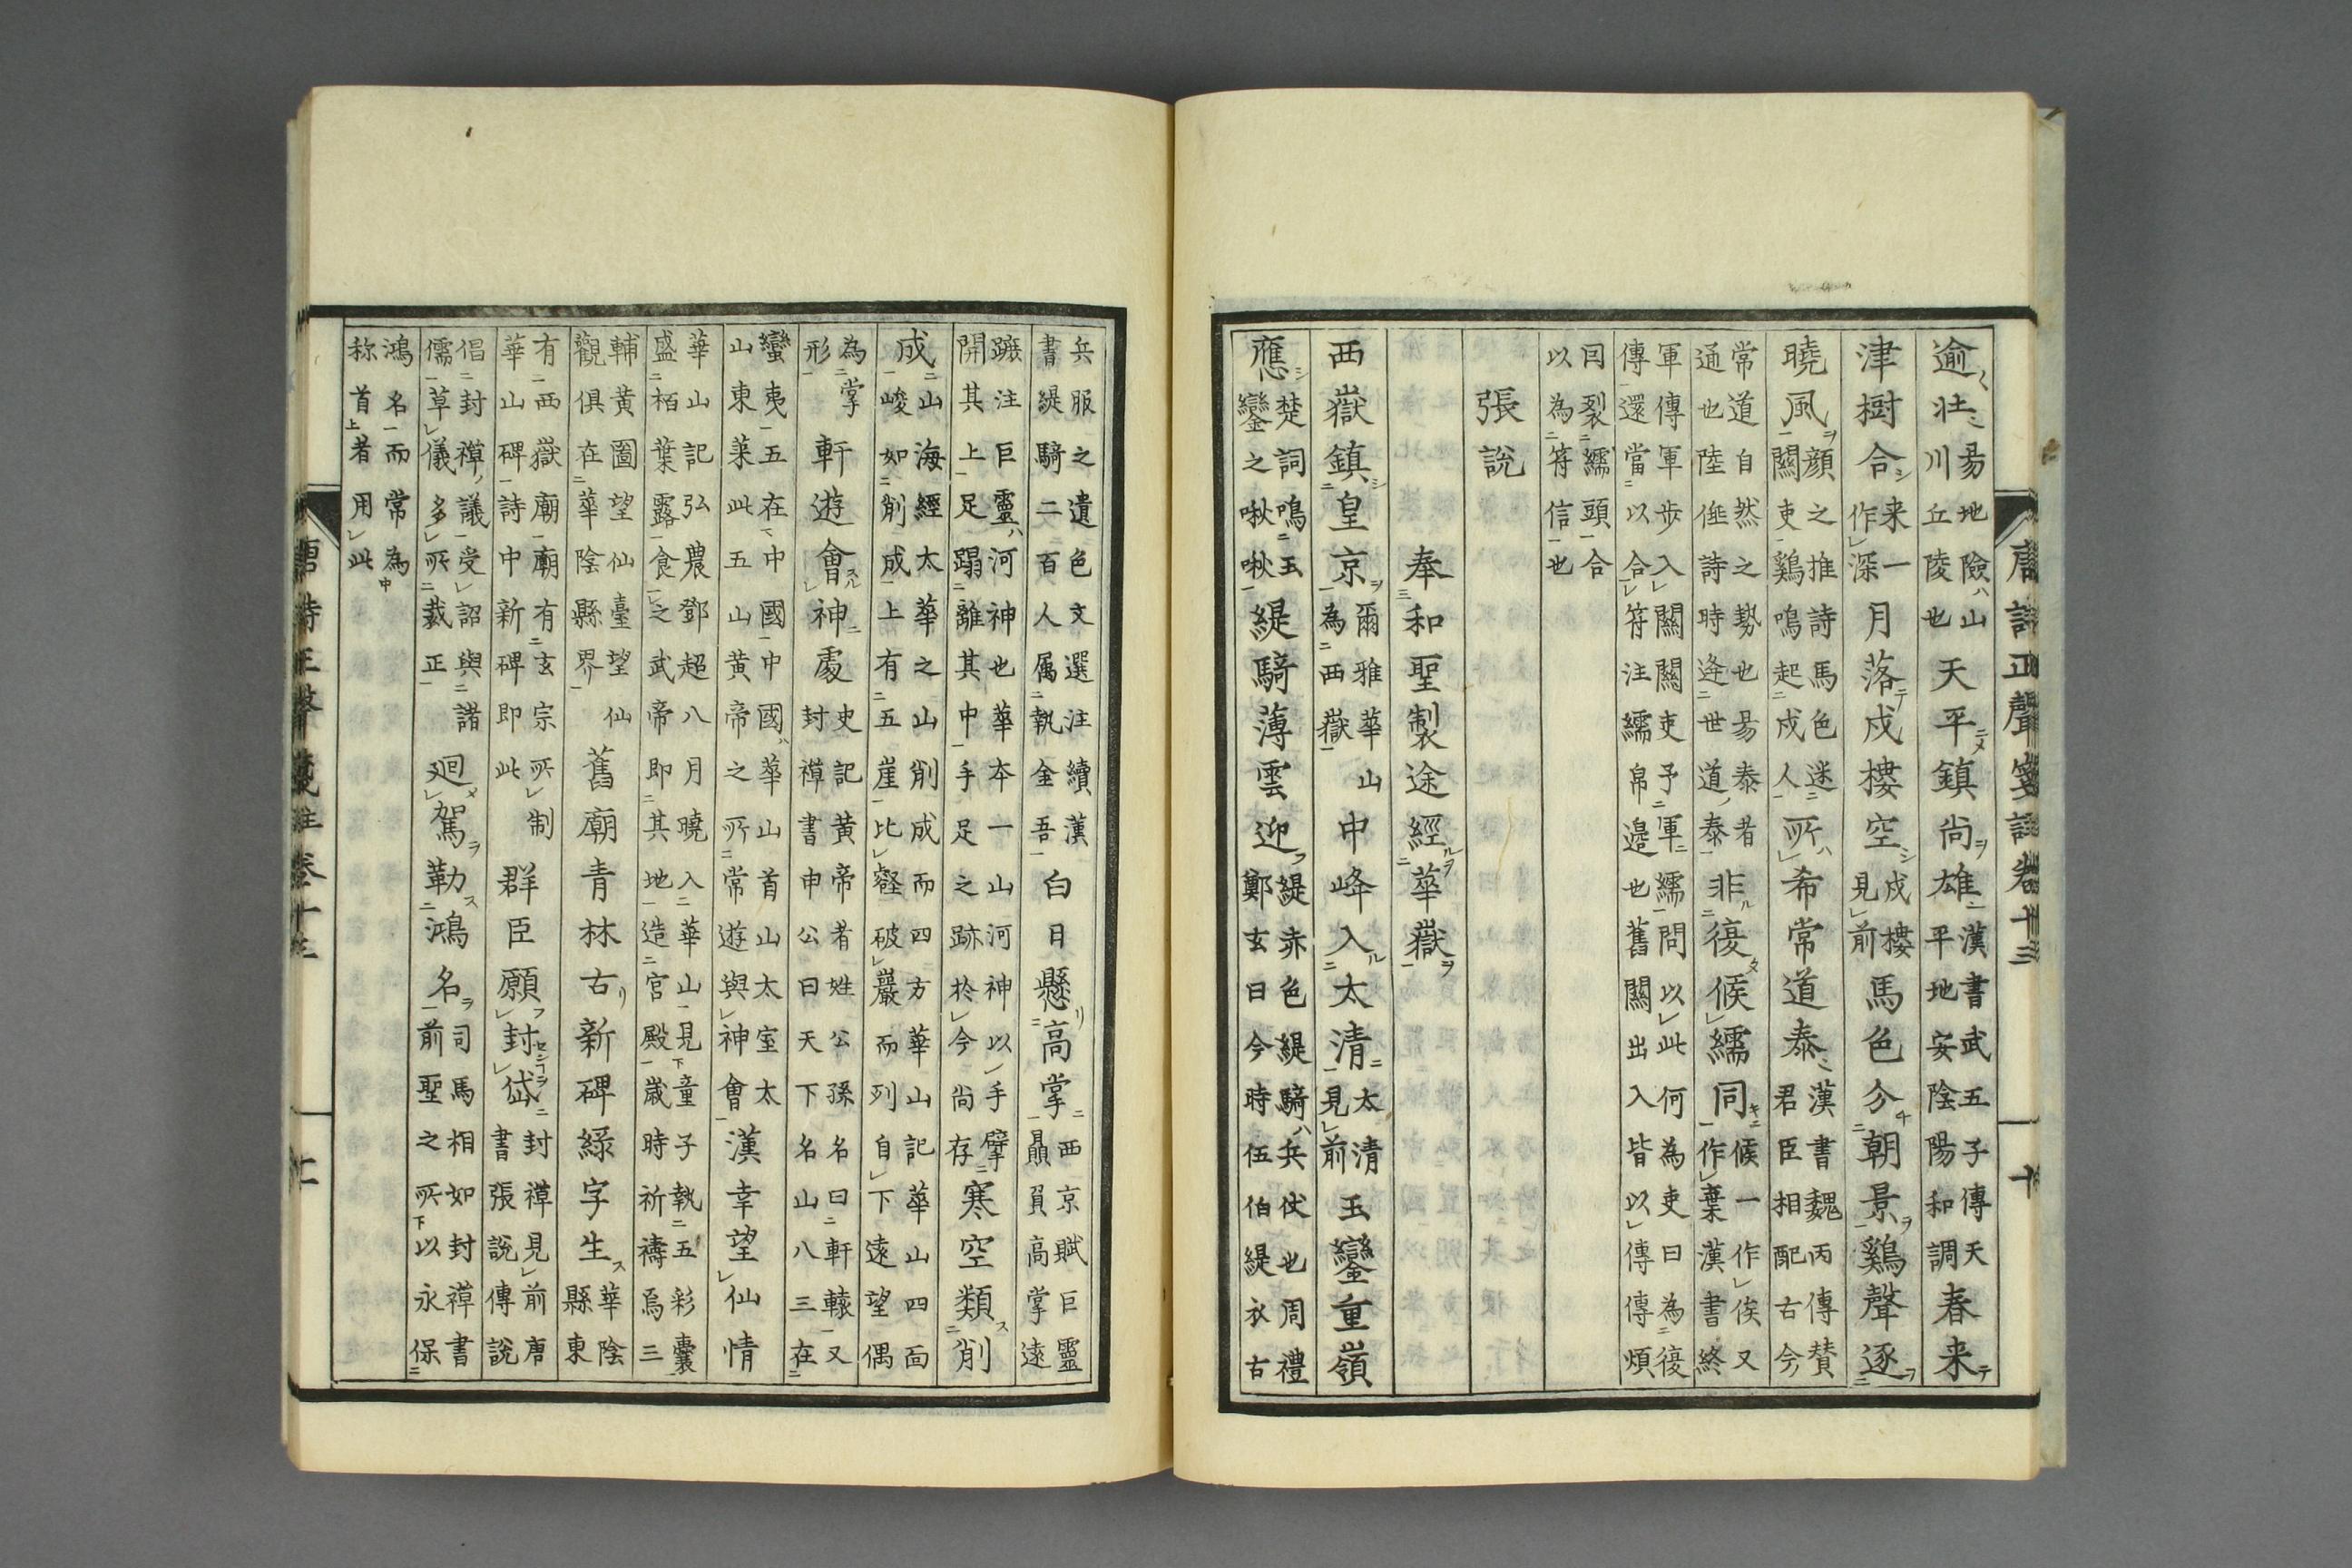 逾壮易地險山
川丘陵也天平鎮尚雄漢書武五子傳天
平地安陰陽和調春来
津樹合来一
作深月落戍樓空戍樓
見前馬色分朝景鷄聲逐
曉風顔之推詩馬色迷
關吏鷄鳴起戍人所希常道泰漢書魏丙傳賛
君臣相配古今
常道自然之勢也易泰者
通也陸倕詩時逄世道泰非復候繻同候一作俟又
作棄漢書終
軍傳軍步入關關吏予軍繻問以此何為吏曰為復
傳還當以合符注繻帛邊也舊關出入皆以傳傳煩
曰裂繻頭合
以為符信也
張說
奉和聖製途經華嶽
西嶽鎮皇京爾雅華山
為西嶽中峰入太清太清
見前玉鑾重嶺
應楚詞鳴玉
鑾之啾啾緹騎薄雲迎緹赤色緹騎兵仗也周禮
鄭玄曰今時伍伯緹衣古
兵服之遺色文選注續漢
書緹騎二百人属執金吾白日懸高掌西京賦巨靈
贔屓高掌遠
蹠注巨靈河神也華本一山河神以手擘
開其上足蹋離其中手足之跡於今尚存寒空類削
成山海經太華之山削成而四方華山記華山四面
峻如削成上有五崖比壑破巖而列自下遠望偶
為掌
形軒遊會神處史記黄帝者姓公孫名曰軒轅又
封禅書申公曰天下名山八三在
蠻夷五在中國中國華山首山太室太
山東莱此五山黄帝之所常遊與神會漢幸望仙情
華山記弘農鄧超八月曉入華山見童子執五彩囊
盛栢葉露食之武帝即其地造宮殿歲時祈禱焉三
輔黄圖望仙臺望仙
觀俱在華陰縣界舊廟青林古新碑緑字生華陰
縣東
有西嶽廟廟有玄宗所制
華山碑詩中新碑即此群臣願封岱封禅見前唐
書張説傳說
倡封禅議受詔與諸
儒草儀多所裁正廻駕勒鴻名司馬相如封禅書
前聖之所以永保
鴻名而常為
称首者用此
唐詩正聲箋註卷十三
十